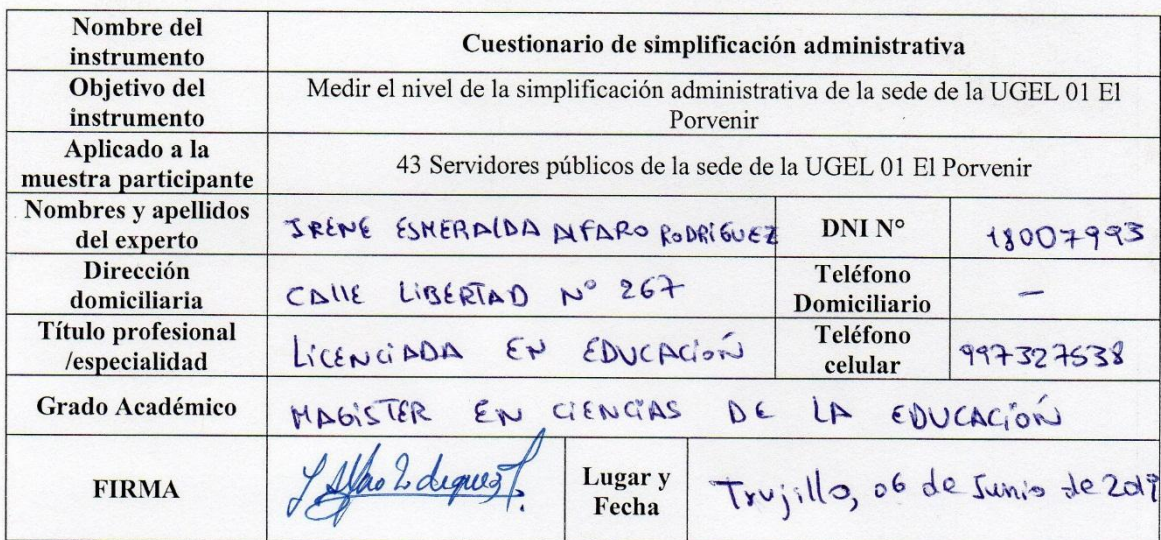 Nombre del
instrumento
Cuestionario de simplificación administrativa
Objetivo del
instrumento
Medir el nivel de la simplificación administrativa de la sede de la UGEL 01 El
Porvenir
Aplicado a la
muestra participante
43 Servidores públicos de la sede de la UGEL 01 El Porvenir
Nombres y apellidos
del experto
IRENE ESMERALDA ALFARO RODRÍGUEZ
DNI N°
18007993
Dirección
domiciliaria
CALLE LIBERTAD N° 267
Teléfono
Domiciliario
—
Título profesional
/especialidad
LICENCIADA EN EDUCACIÓN
Teléfono
celular
997327538
Grado Académico
MAGISTER EN CIENCIAS DE LA EDUCACIÓN
FIRMA
Lugar y
Fecha
Trujillo, 06 de Junio de